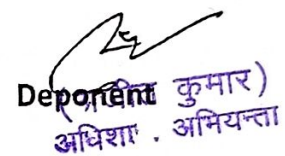 Deponent
कुमार)
अधिशा. अभियन्ता